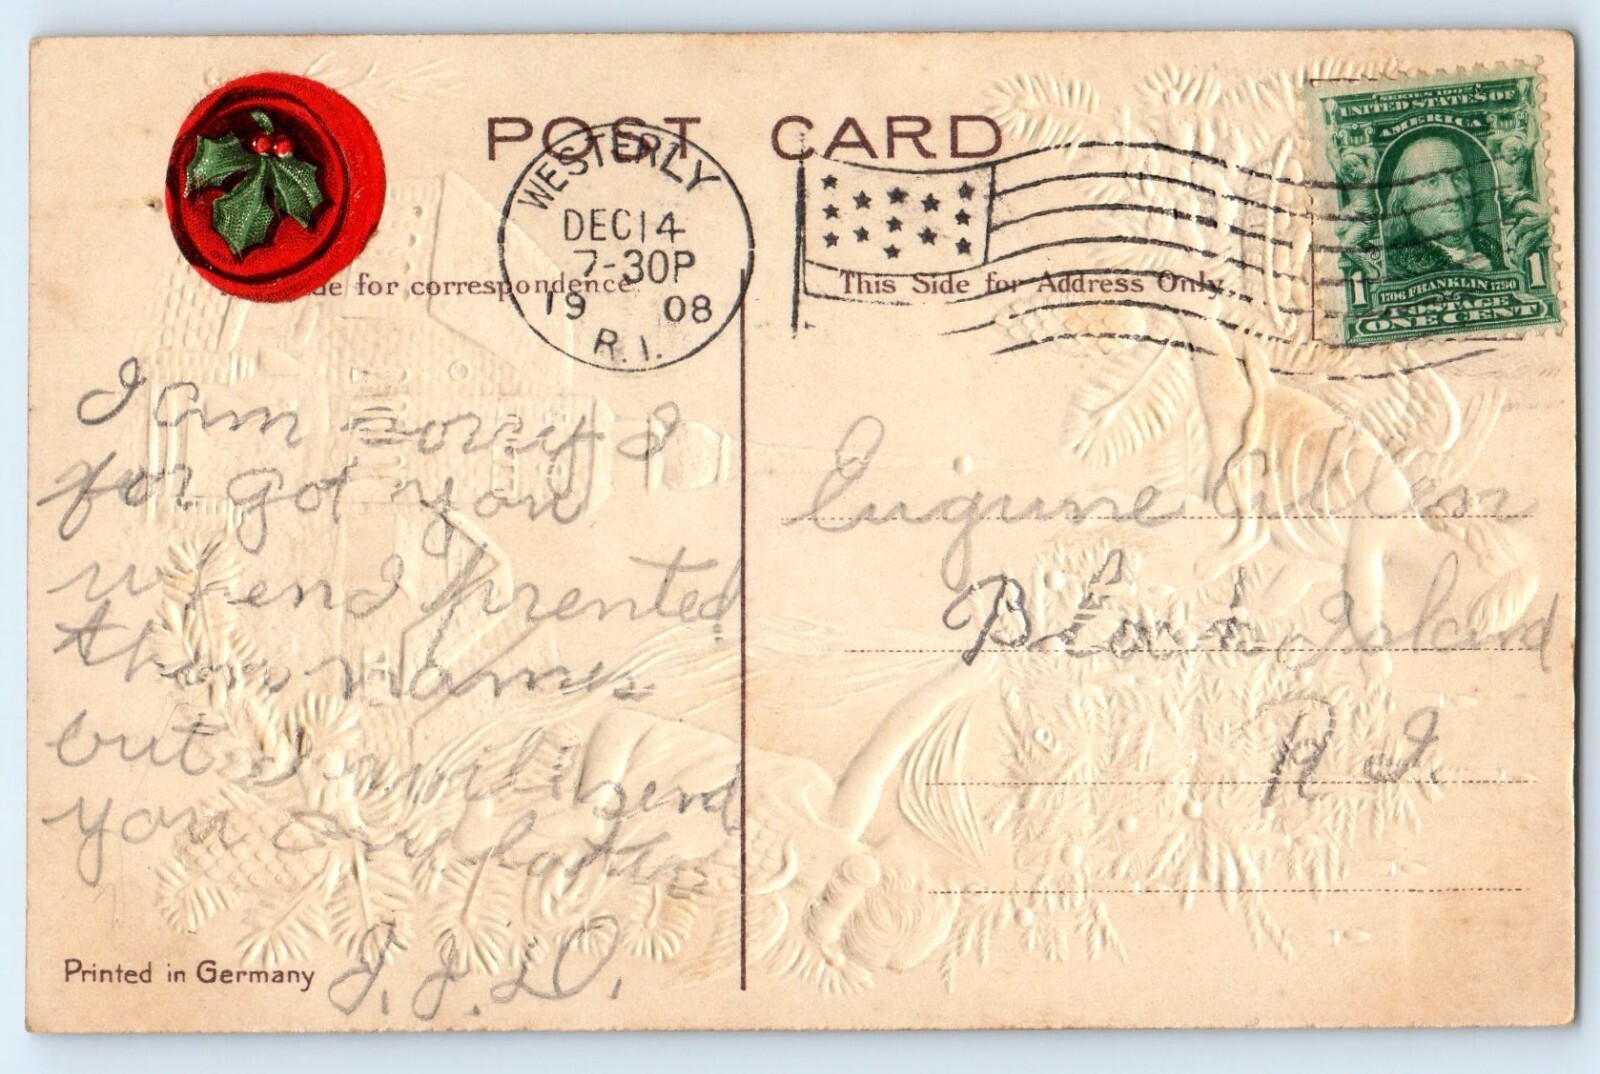 POST CARD
WESTERLY
DEC 14
7-30P
19 08
R.I.
SERIES 1902
UNITED STATES OF
AMERICA
1706 FRANKLIN 1790
POSTAGE
1 1
ONE CENT
de for correspondence
This Side for Address Only.
I am sorry I
for got you
when I prented
them names
but I will send
you
I. J. LO.
Eugune Allen
Block Island
R I.
Printed in Germany